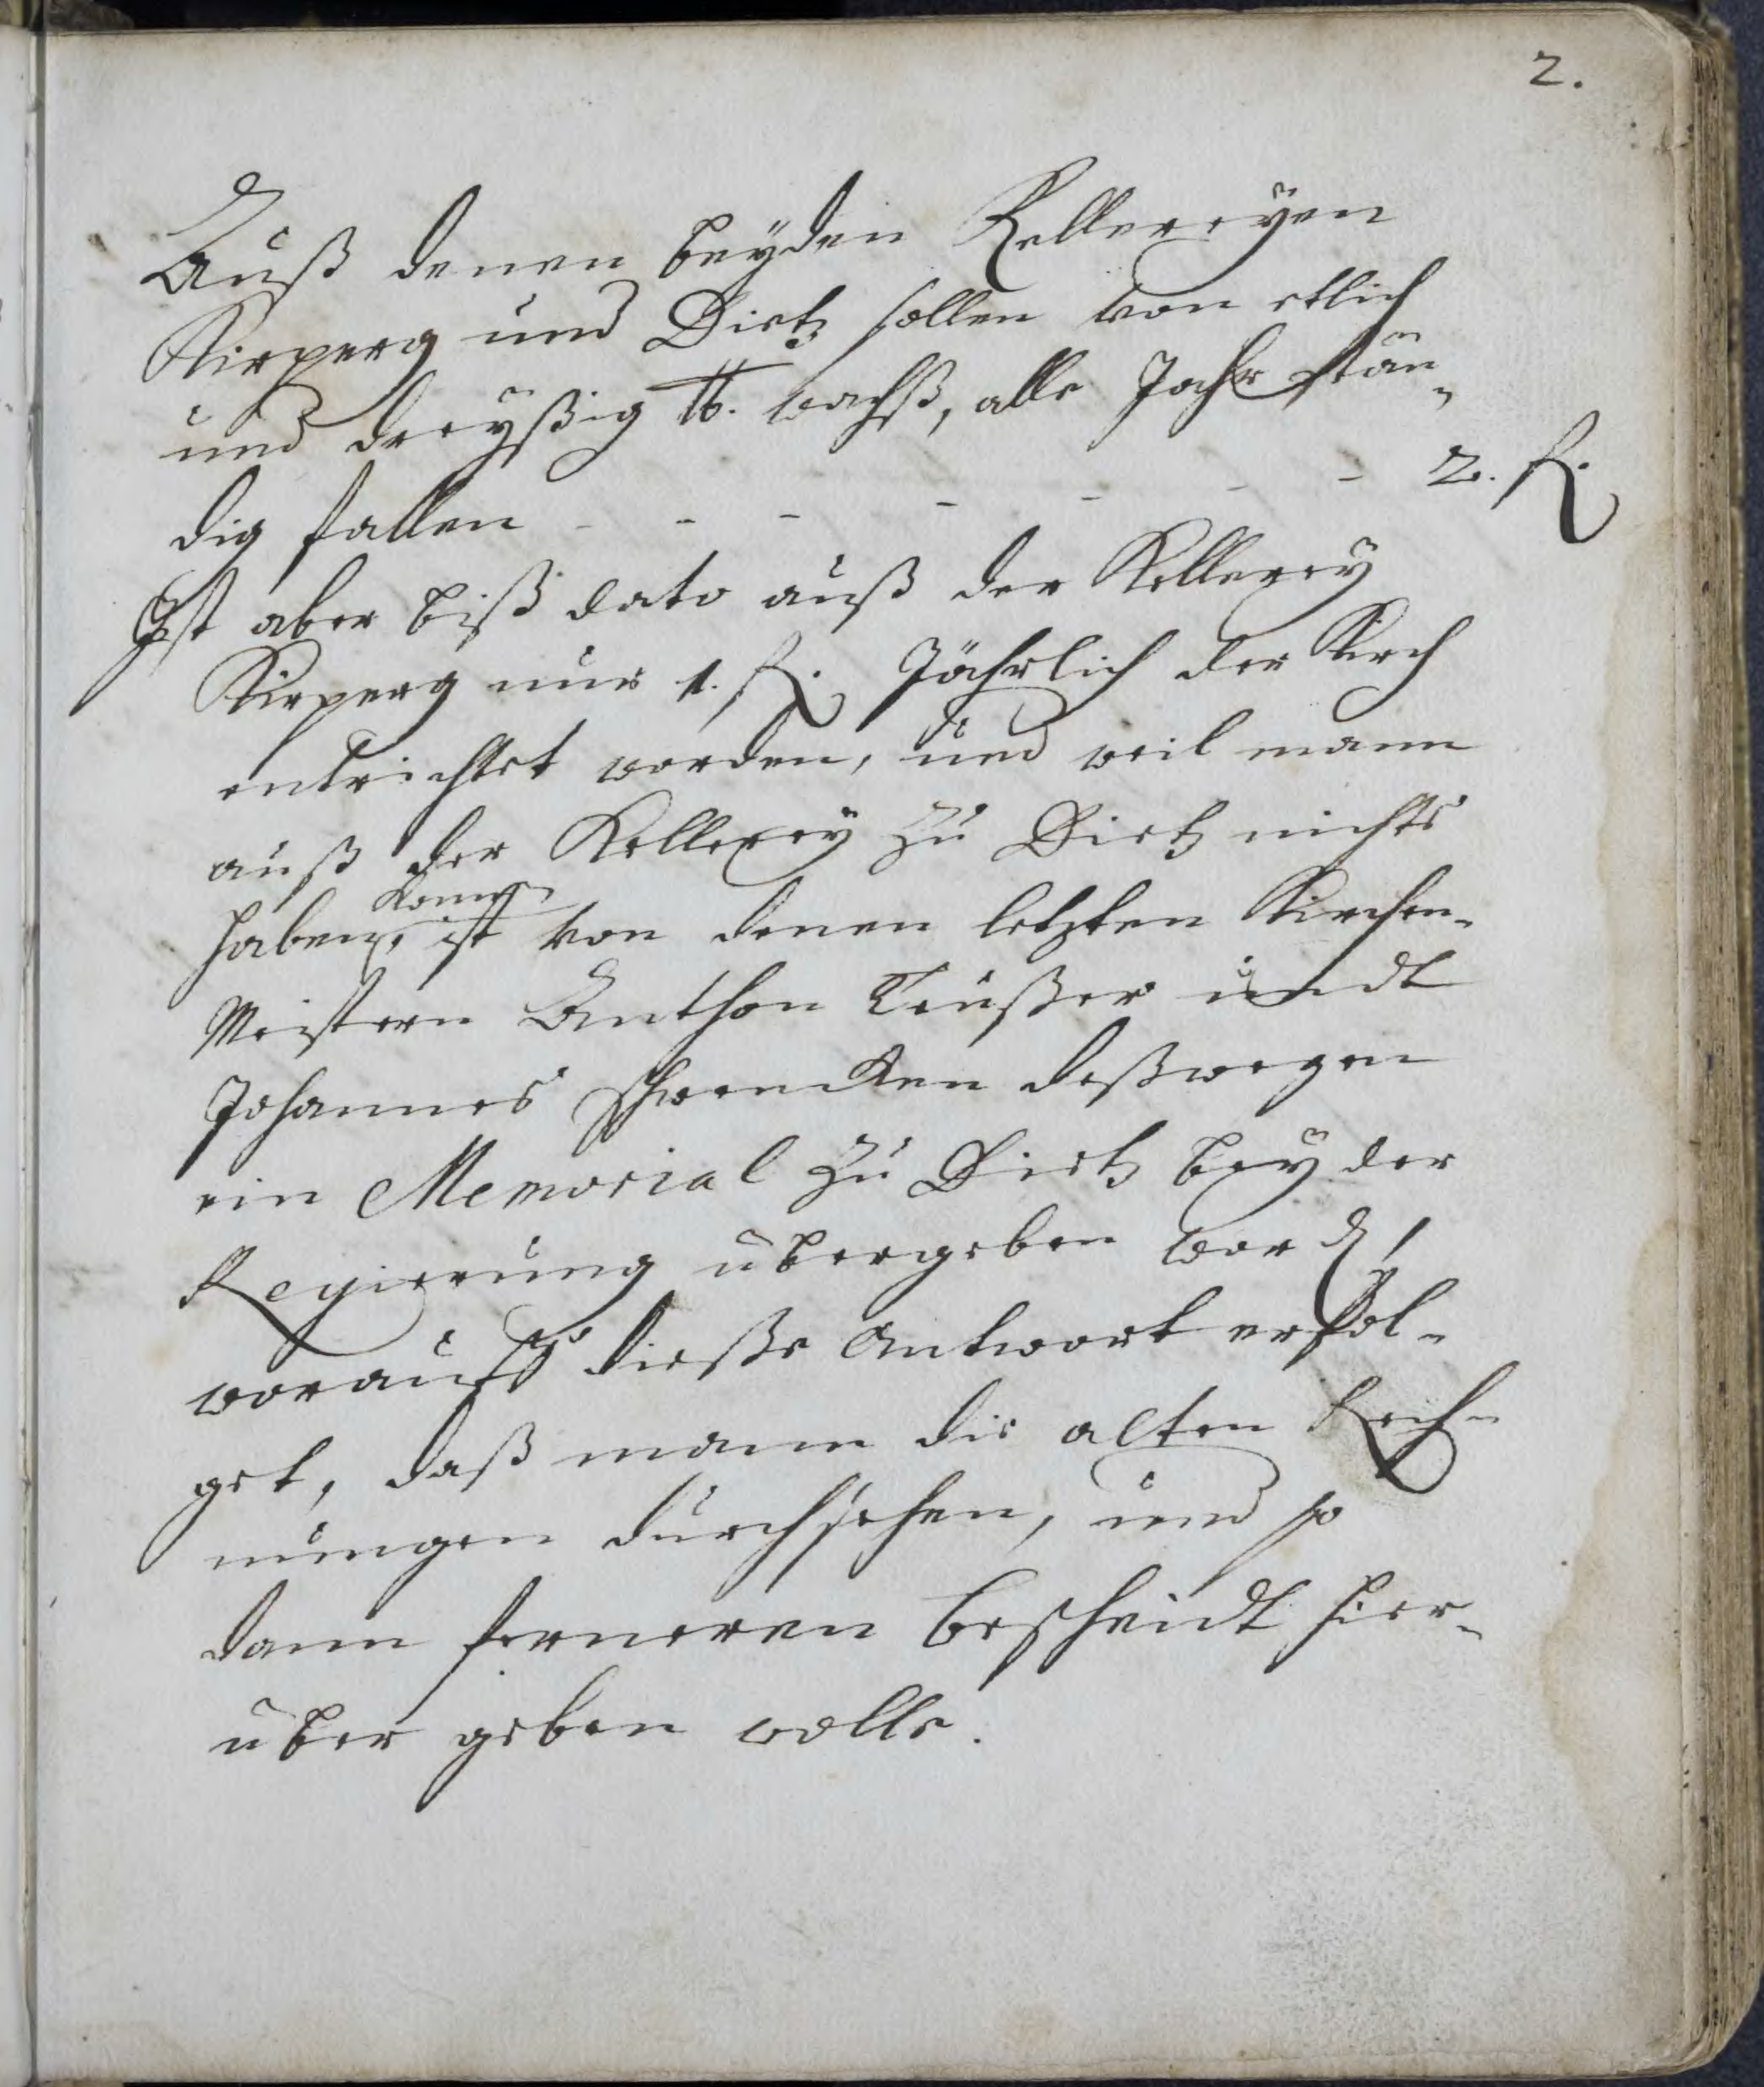 2.
Auß denen beyden Kellereÿen
Kirperg und Dietz sollen von etlich
und dreÿßig ℔. wachß, alle Jahr stän-
dig fallen - - - - - - 2. fl.
Ist aber biß dato auß der Kellereÿ
Kirperg nur 1. fl. Jährlich der Kirch
entrichtet worden, und weil mann
auß der Kellereÿ zu Dietz nichts
können
haben, ist von denen letzten Kirchen-
Meistern Anthon Leußer undt
Johannes Schwencken deßwegen
ein Memorial zu Dietz beÿ der
Regierung übergeben word,
worauff dieße Antwort erfol-
get, daß mann die alten Rech-
nungen durchsehen, und so
dann ferneren bescheidt hier-
über geben wolle.